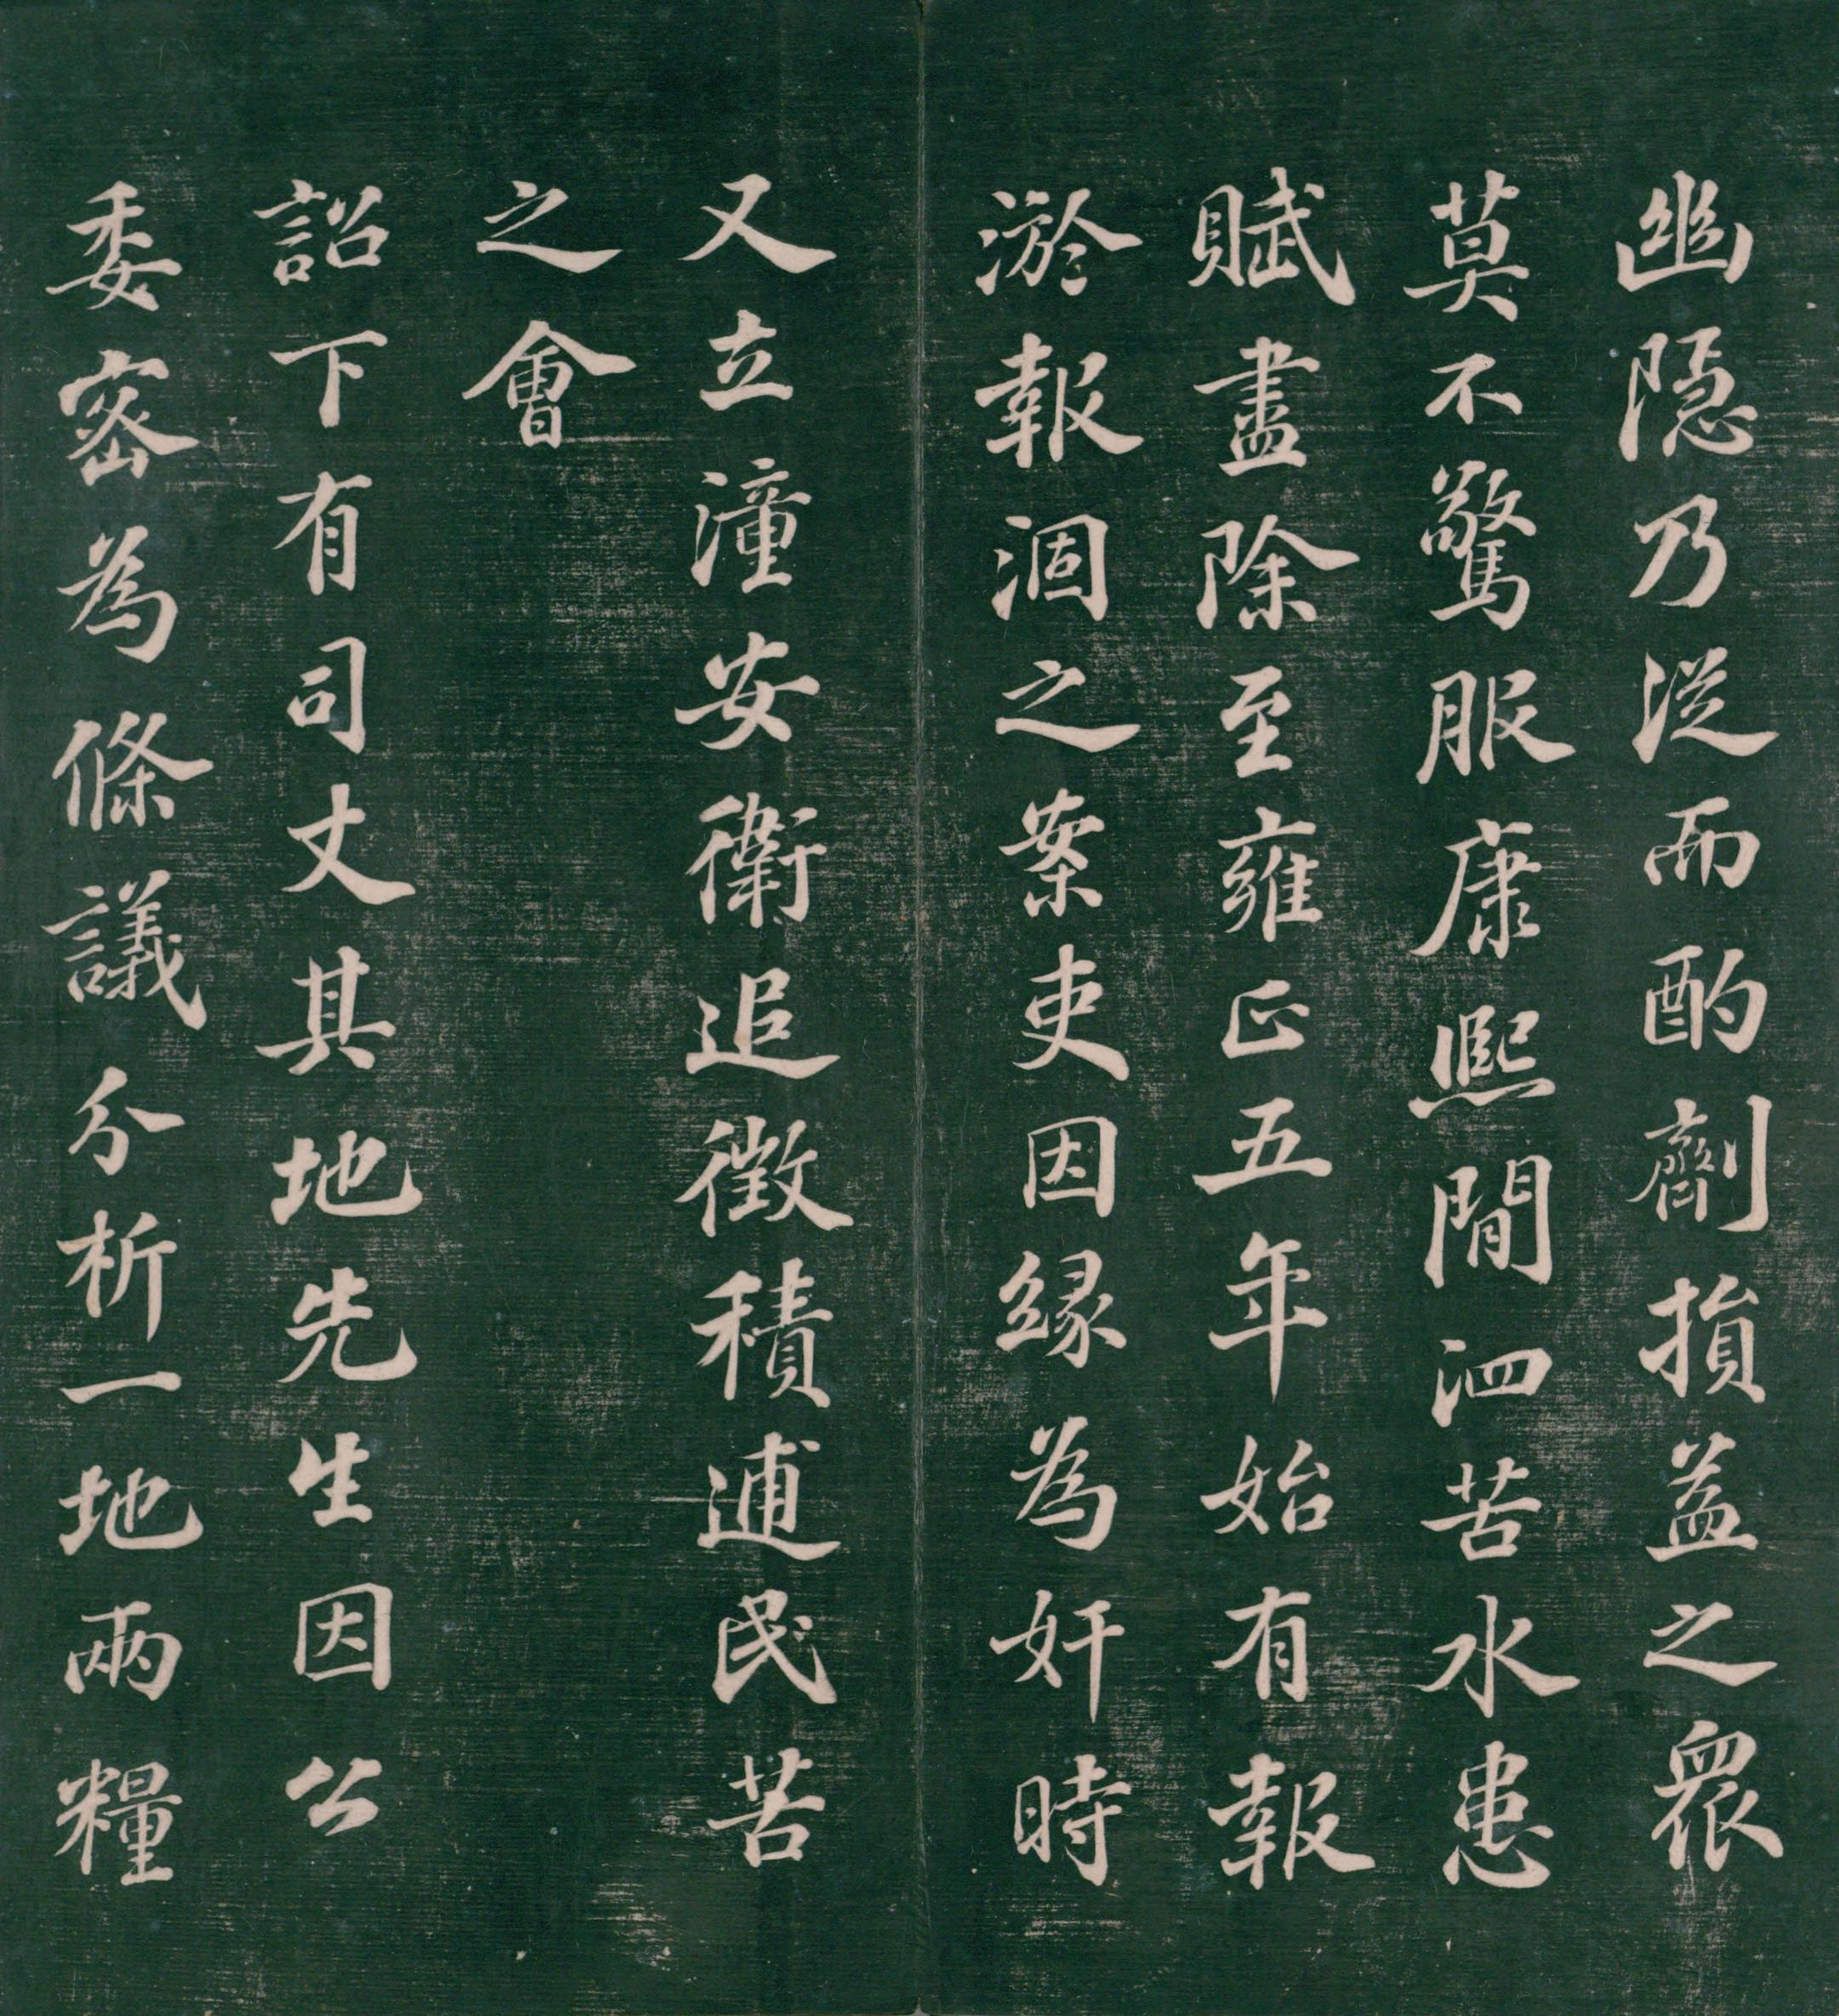 幽隱乃從而酌劑損益之衆
莫不驚服康熙間泗苦水患
賦盡除至雍正五年始有報
淤報涸之案吏因緣為奸時
又立潼安衛追徵積逋民苦
之會
詔下有司丈其地先生因公
委密為條議分析一地兩糧